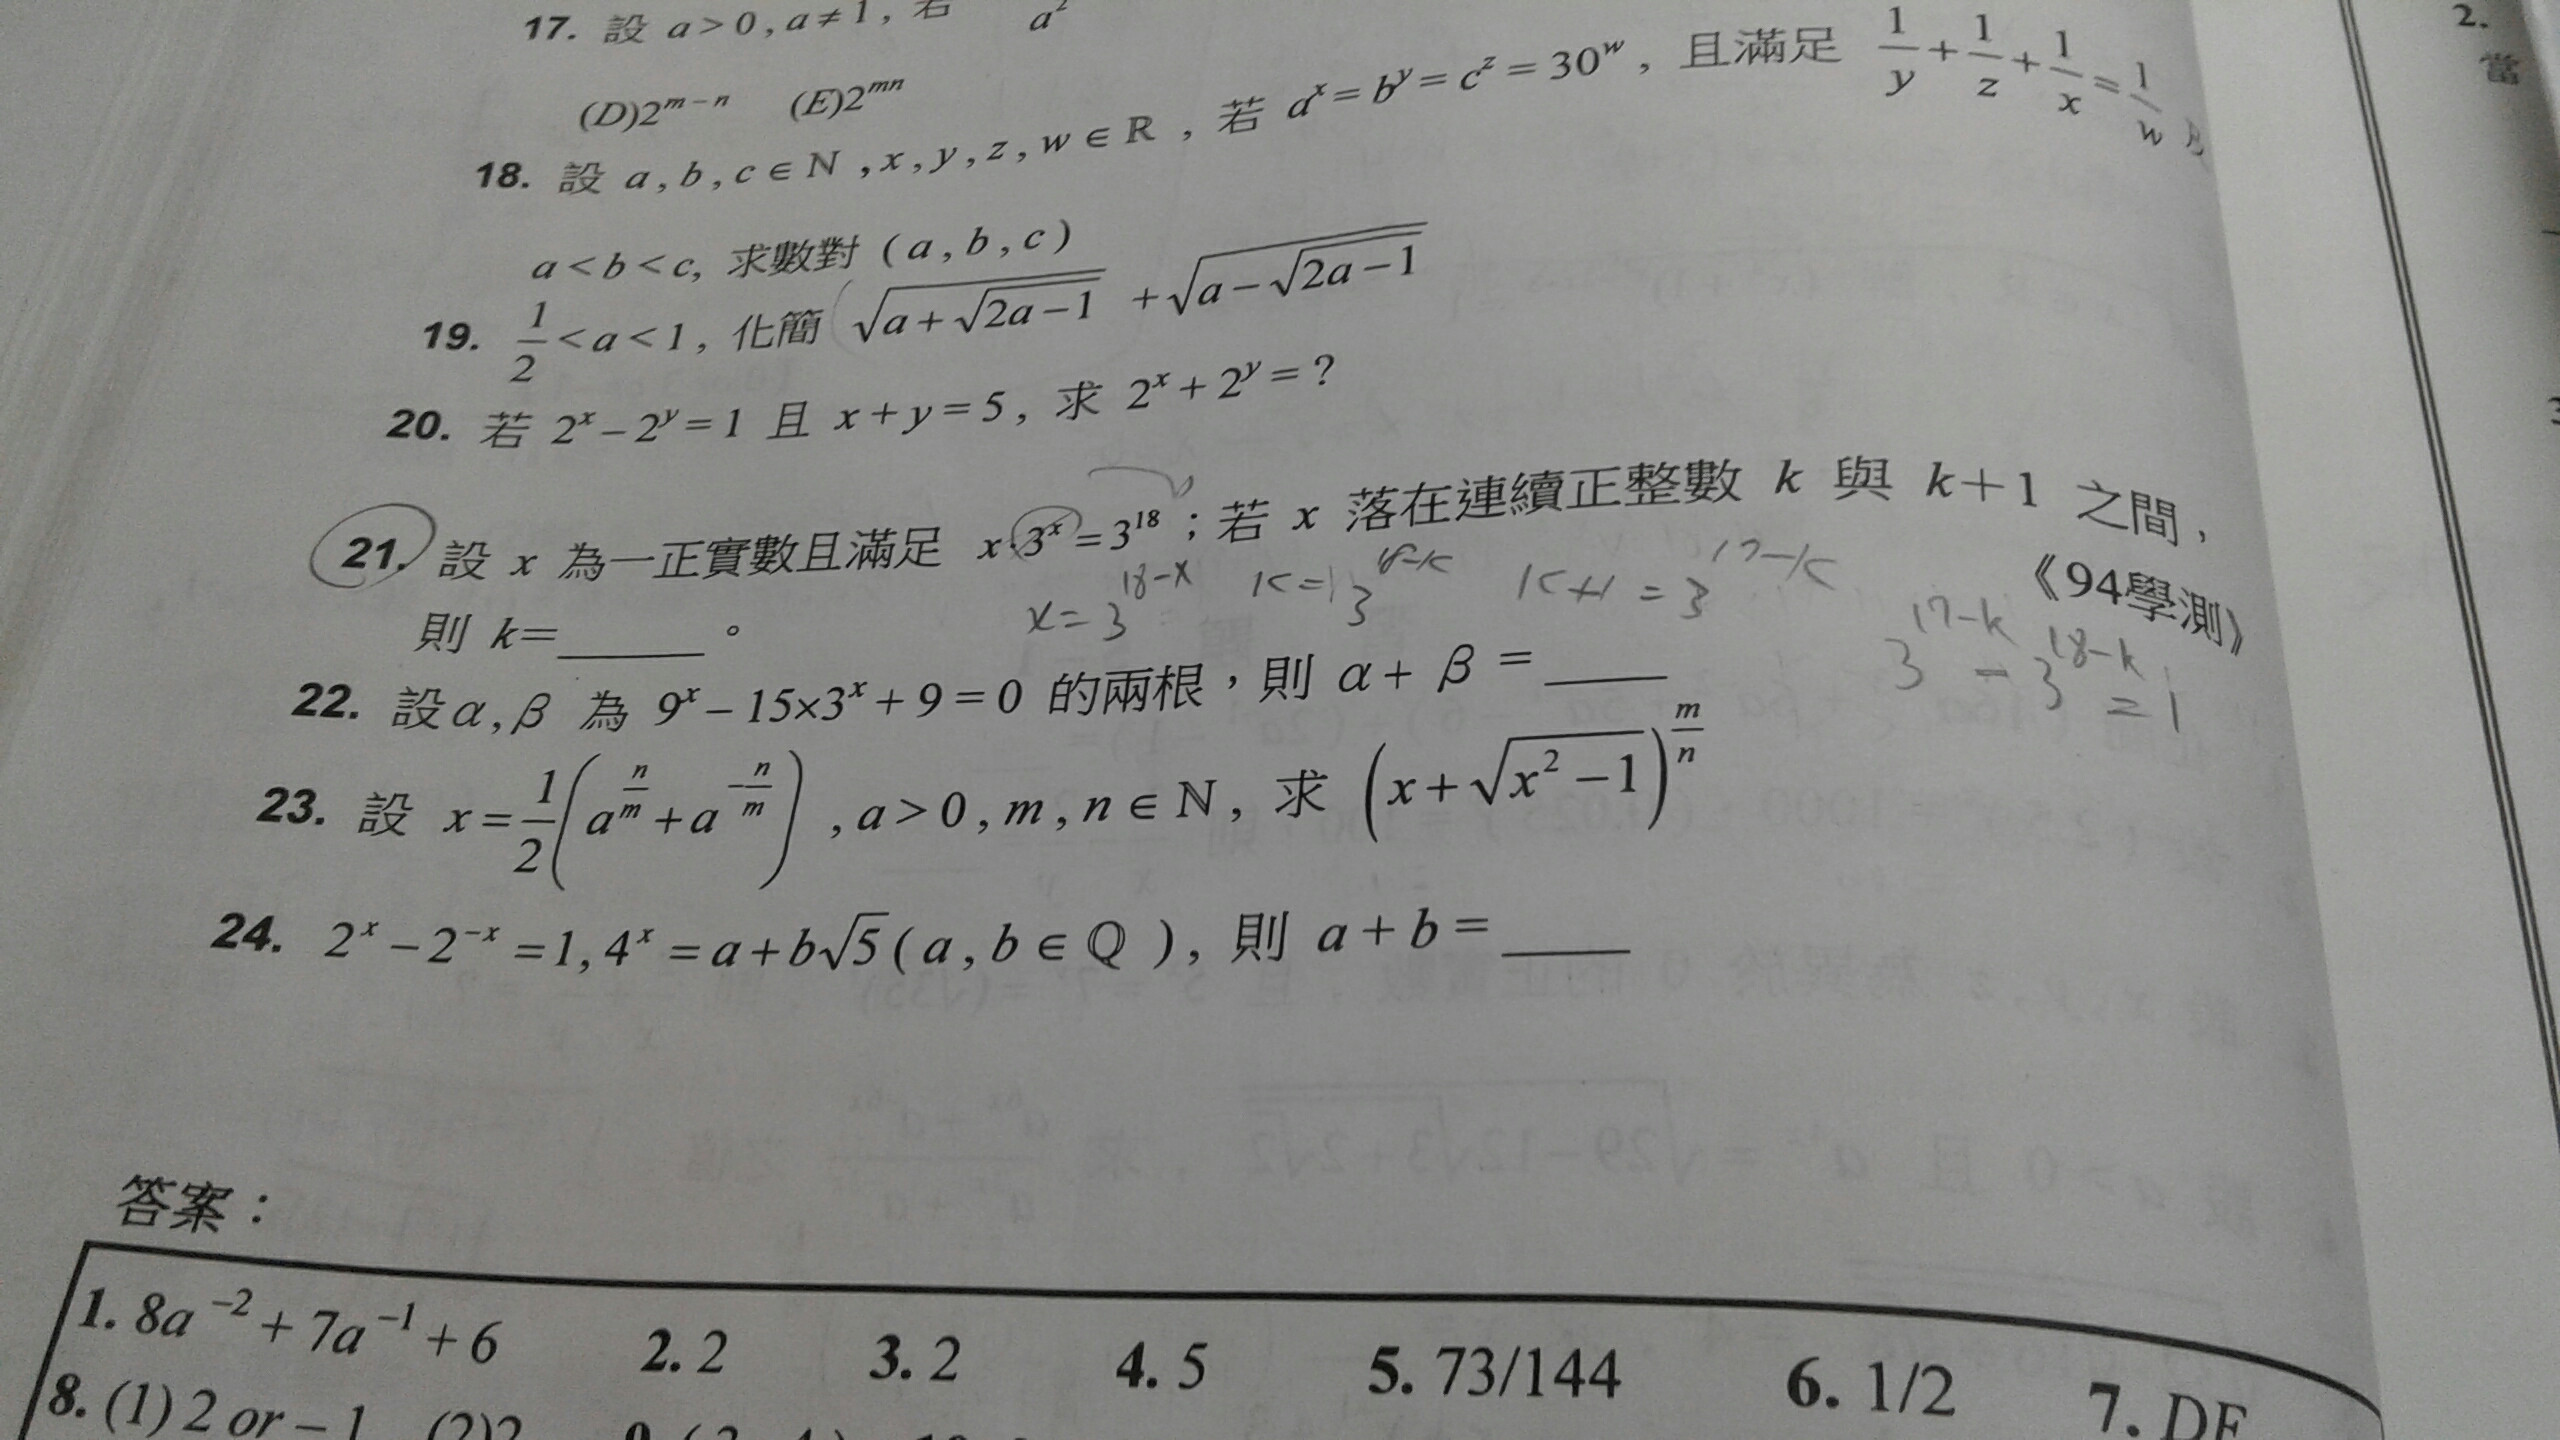 17. 設 a>0,a≠1, 若 a²
(D)2^{m-n} (E)2^{mn}
18. 設 a,b,c∈N,x,y,z,w∈R,若 a^x=b^y=c^z=30^w,且滿足 1/y+1/z+1/x=1/w
a<b<c, 求數對 (a,b,c)
19. 1/2<a<1, 化簡 √(a+√(2a-1)) +√(a-√(2a-1))
20. 若 2^x-2^y=1 且 x+y=5, 求 2^x+2^y=?
21. 設 x 為一正實數且滿足 x·3^x=3^18;若 x 落在連續正整數 k 與 k+1 之間,
則 k=____。 《94學測》
x=3^{18-x} k=3^{18-k} k+1=3^{17-k}
3^{17-k}-3^{18-k}=1
22. 設α,β 為 9^x-15×3^x+9=0 的兩根,則 α+β=____
23. 設 x=1/2(a^{n/m}+a^{-n/m}),a>0,m,n∈N, 求 (x+√(x²-1))^{m/n}
24. 2^x-2^{-x}=1,4^x=a+b√5(a,b∈Q), 則 a+b=____
答案:
1. 8a^{-2}+7a^{-1}+6 2. 2 3. 2 4. 5 5. 73/144 6. 1/2 7. DE
8. (1) 2 or -1 (2)2
2.
當